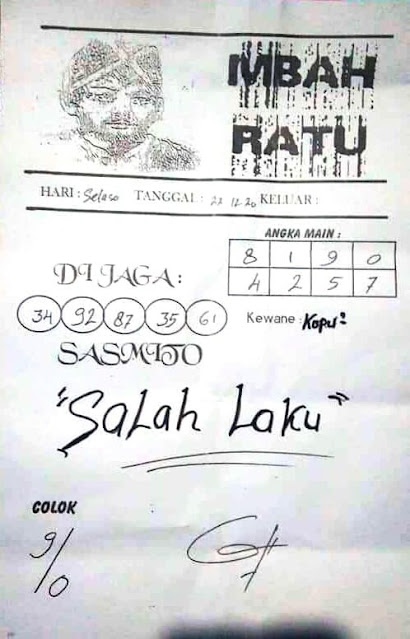 MBAH
RATU
HARI : Selaso TANGGAL : 22 12 20 KELUAR :
ANGKA MAIN :
8 1 9 0
4 2 5 7
DI JAGA :
34 92 87 35 61
Kewane : Kopu²
SASMITO
"Salah Laku"
COLOK
9/0